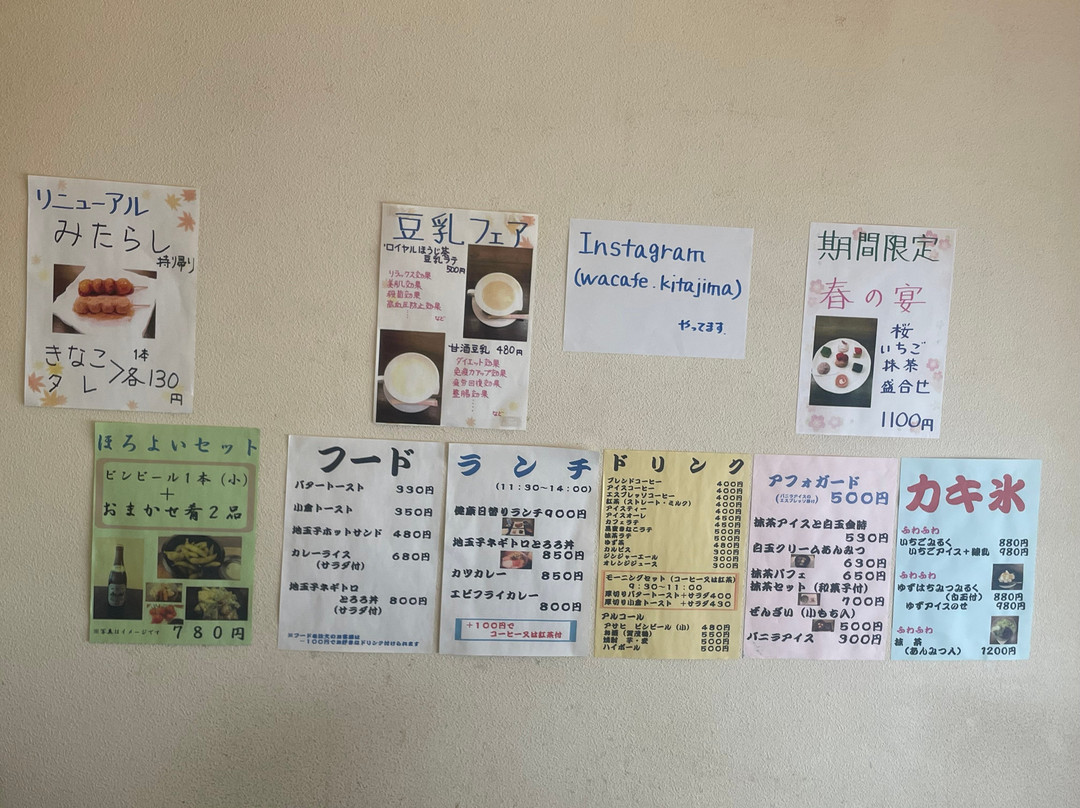 リニューアル
みたらし
持り帰り
きなこ
タレ
1本
各130円
豆乳フェア
ロイヤルほうじ茶
豆乳ラテ
500円
リラックス効果
美肌し効果
殺菌効果
高血圧防止効果
など
甘酒豆乳 480円
ダイエット効果
免疫力アップ効果
疲労回復効果
整腸効果
など
Instagram
(wacafe.kitajima)
やってます。
期間限定
春の宴
桜
いちご
抹茶
盛合せ
1100円
ほろよいセット
ビンビール1本(小)
+
おまかせ肴2品
※写真はイメージです
780円
フード
バタートースト 330円
小倉トースト 350円
地玉子ホットサンド 480円
カレーライス 680円
(サラダ付)
地玉子ネギトロ
とろろ丼 800円
(サラダ付)
ランチ
(11:30~14:00)
健康日替りランチ900円
地玉子ネギトロとろろ丼
850円
カツカレー 850円
エビフライカレー
800円
+100円で
コーヒー又は紅茶付
ドリンク
ブレンドコーヒー 400円
アイスコーヒー 400円
エスプレッソコーヒー 400円
紅茶(ストレート・ミルク) 400円
アイスティー 400円
アイスオーレ 450円
カフェラテ
黒蜜きなこラテ
抹茶ラテ
ゆず茶
カルピス 300円
ジンジャーエール 300円
オレンジジュース 300円
モーニングセット(コーヒー又は紅茶)
9:30~11:00
厚切りバタートースト+サラダ400
厚切り小倉トースト +サラダ430
アルコール
アサヒ ビンビール(小) 480円
550円
焼酎 芋・麦 550円
ハイボール 500円
アフォガード
(バニラアイスの
エスプレッソ掛け) 500円
抹茶アイスと白玉金時
530円
白玉クリームあんみつ
630円
抹茶パフェ 650円
抹茶セット(和菓子付)
700円
ぜんざい(小もち入)
500円
バニラアイス 300円
カキ氷
ふわふわ
いちごみるく 880円
いちごアイス+練乳 980円
ふわふわ
ゆずはちみつみるく
(白玉付) 880円
ゆずアイスのせ 980円
ふわふわ
抹茶
(あんみつ入) 1200円